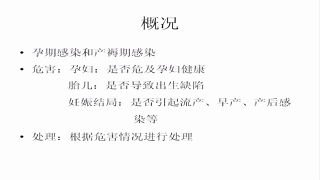 概况
• 孕期感染和产褥期感染
• 危害：孕妇：是否危及孕妇健康
胎儿：是否导致出生缺陷
妊娠结局：是否引起流产、早产、产后感
染等
• 处理：根据危害情况进行处理